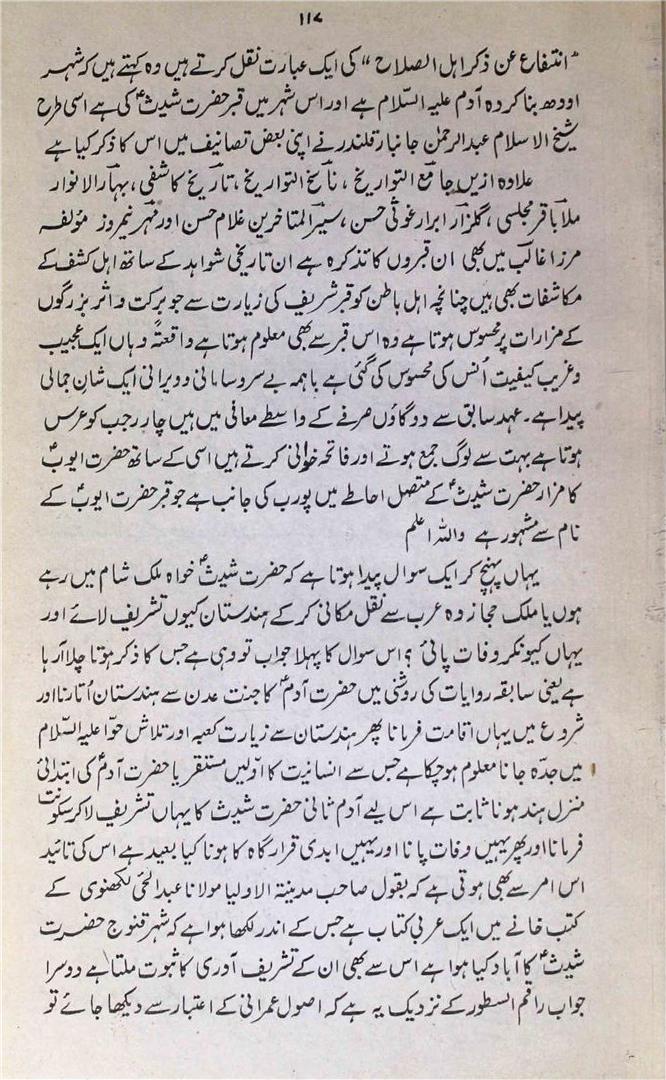 ۱۱۷
"انتفاع عن ذکر اہل الصلاح" کی ایک عبارت نقل کرتے ہیں وہ کہتے ہیں کہ شہر
اودھ بنا کردہ آدم علیہ السلام ہے اور اس شہر میں قبر حضرت شیثؑ کی ہے اسی طرح
شیخ الاسلام عبدالرحمٰن جانباز قلندر نے اپنی بعض تصانیف میں اس کا ذکر کیا ہے
علاوہ ازیں جامع التواریخ، ناسخ التواریخ، تاریخ کاشفی، بہار الانوار
ملا باقر مجلسی، گلزار ابرار غوثی حسن، سیر المتاخرین غلام حسن اور مہر نیمروز مؤلفہ
مرزا غالب میں بھی ان قبروں کا تذکرہ ہے ان تاریخی شواہد کے ساتھ اہل کشف کے
مکاشفات بھی ہیں چنانچہ اہل باطن کو قبر شریف کی زیارت سے جو برکت و اثر بزرگوں
کے مزارات پر محسوس ہوتا ہے وہ اس قبر سے بھی معلوم ہوتا ہے واقعتہً وہاں ایک عجیب
وغریب کیفیت اُنس کی محسوس کی گئی ہے باہمہ بے سروسامانی و ویرانی ایک شان جمالی
پیدا ہے۔ عہد سابق سے دو گاؤں صرفے کے واسطے معافی میں ہیں چار رجب کو عرس
ہوتا ہے بہت سے لوگ جمع ہوتے اور فاتحہ خوانی کرتے ہیں اسی کے ساتھ حضرت ایوبؑ
کا مزار حضرت شیثؑ کے متصل احاطے میں پورب کی جانب ہے جو قبر حضرت ایوبؑ کے
نام سے مشہور ہے واللہ اعلم
یہاں پہنچ کر ایک سوال پیدا ہوتا ہے کہ حضرت شیثؑ خواہ ملک شام میں رہے
ہوں یا ملک حجاز وہ عرب سے نقل مکانی کر کے ہندستان کیوں تشریف لائے اور
یہاں کیونکر وفات پائی؟ اس سوال کا پہلا جواب تو وہی ہے جس کا ذکر ہوتا چلا آرہا
ہے یعنی سابقہ روایات کی روشنی میں حضرت آدمؑ کا جنت عدن سے ہندستان اُتارنا اور
شروع میں یہاں اقامت فرمانا پھر ہندستان سے زیارت کعبہ اور تلاش حوّا علیہ السّلام
میں جدّہ جانا معلوم ہوچکا ہے جس سے انسانیت کا اوّلیں مستقر یا حضرت آدمؑ کی ابتدائی
منزل ہند ہونا ثابت ہے اس لیے آدم ثانی حضرت شیث کا یہاں تشریف لا کر سکونت
فرمانا اور پھر یہیں وفات پانا اور یہیں ابدی قرار گاہ کا ہونا کیا بعید ہے اس کی تائید
اس امر سے بھی ہوتی ہے کہ بقول صاحب مدینۃ الاولیا مولانا عبدالحئی لکھنوی کے
کتب خانے میں ایک عربی کتاب ہے جس کے اندر لکھا ہوا ہے کہ شہر قنوج حضرت
شیثؑ کا آباد کیا ہوا ہے اس سے بھی ان کے تشریف آوری کا ثبوت ملتا ہے دوسرا
جواب راقم السطور کے نزدیک یہ ہے کہ اصول عمرانی کے اعتبار سے دیکھا جائے تو